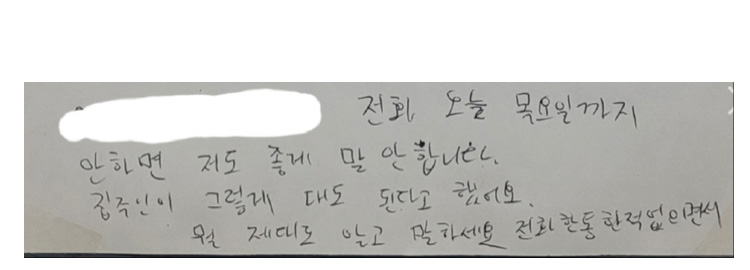 전화 오늘 목요일까지
안하면 저도 좋게 말 안합니다.
집주인이 그렇게 대도 된다고 했어요.
뭘 제대로 알고 말하세요 전화한통한적없으면서